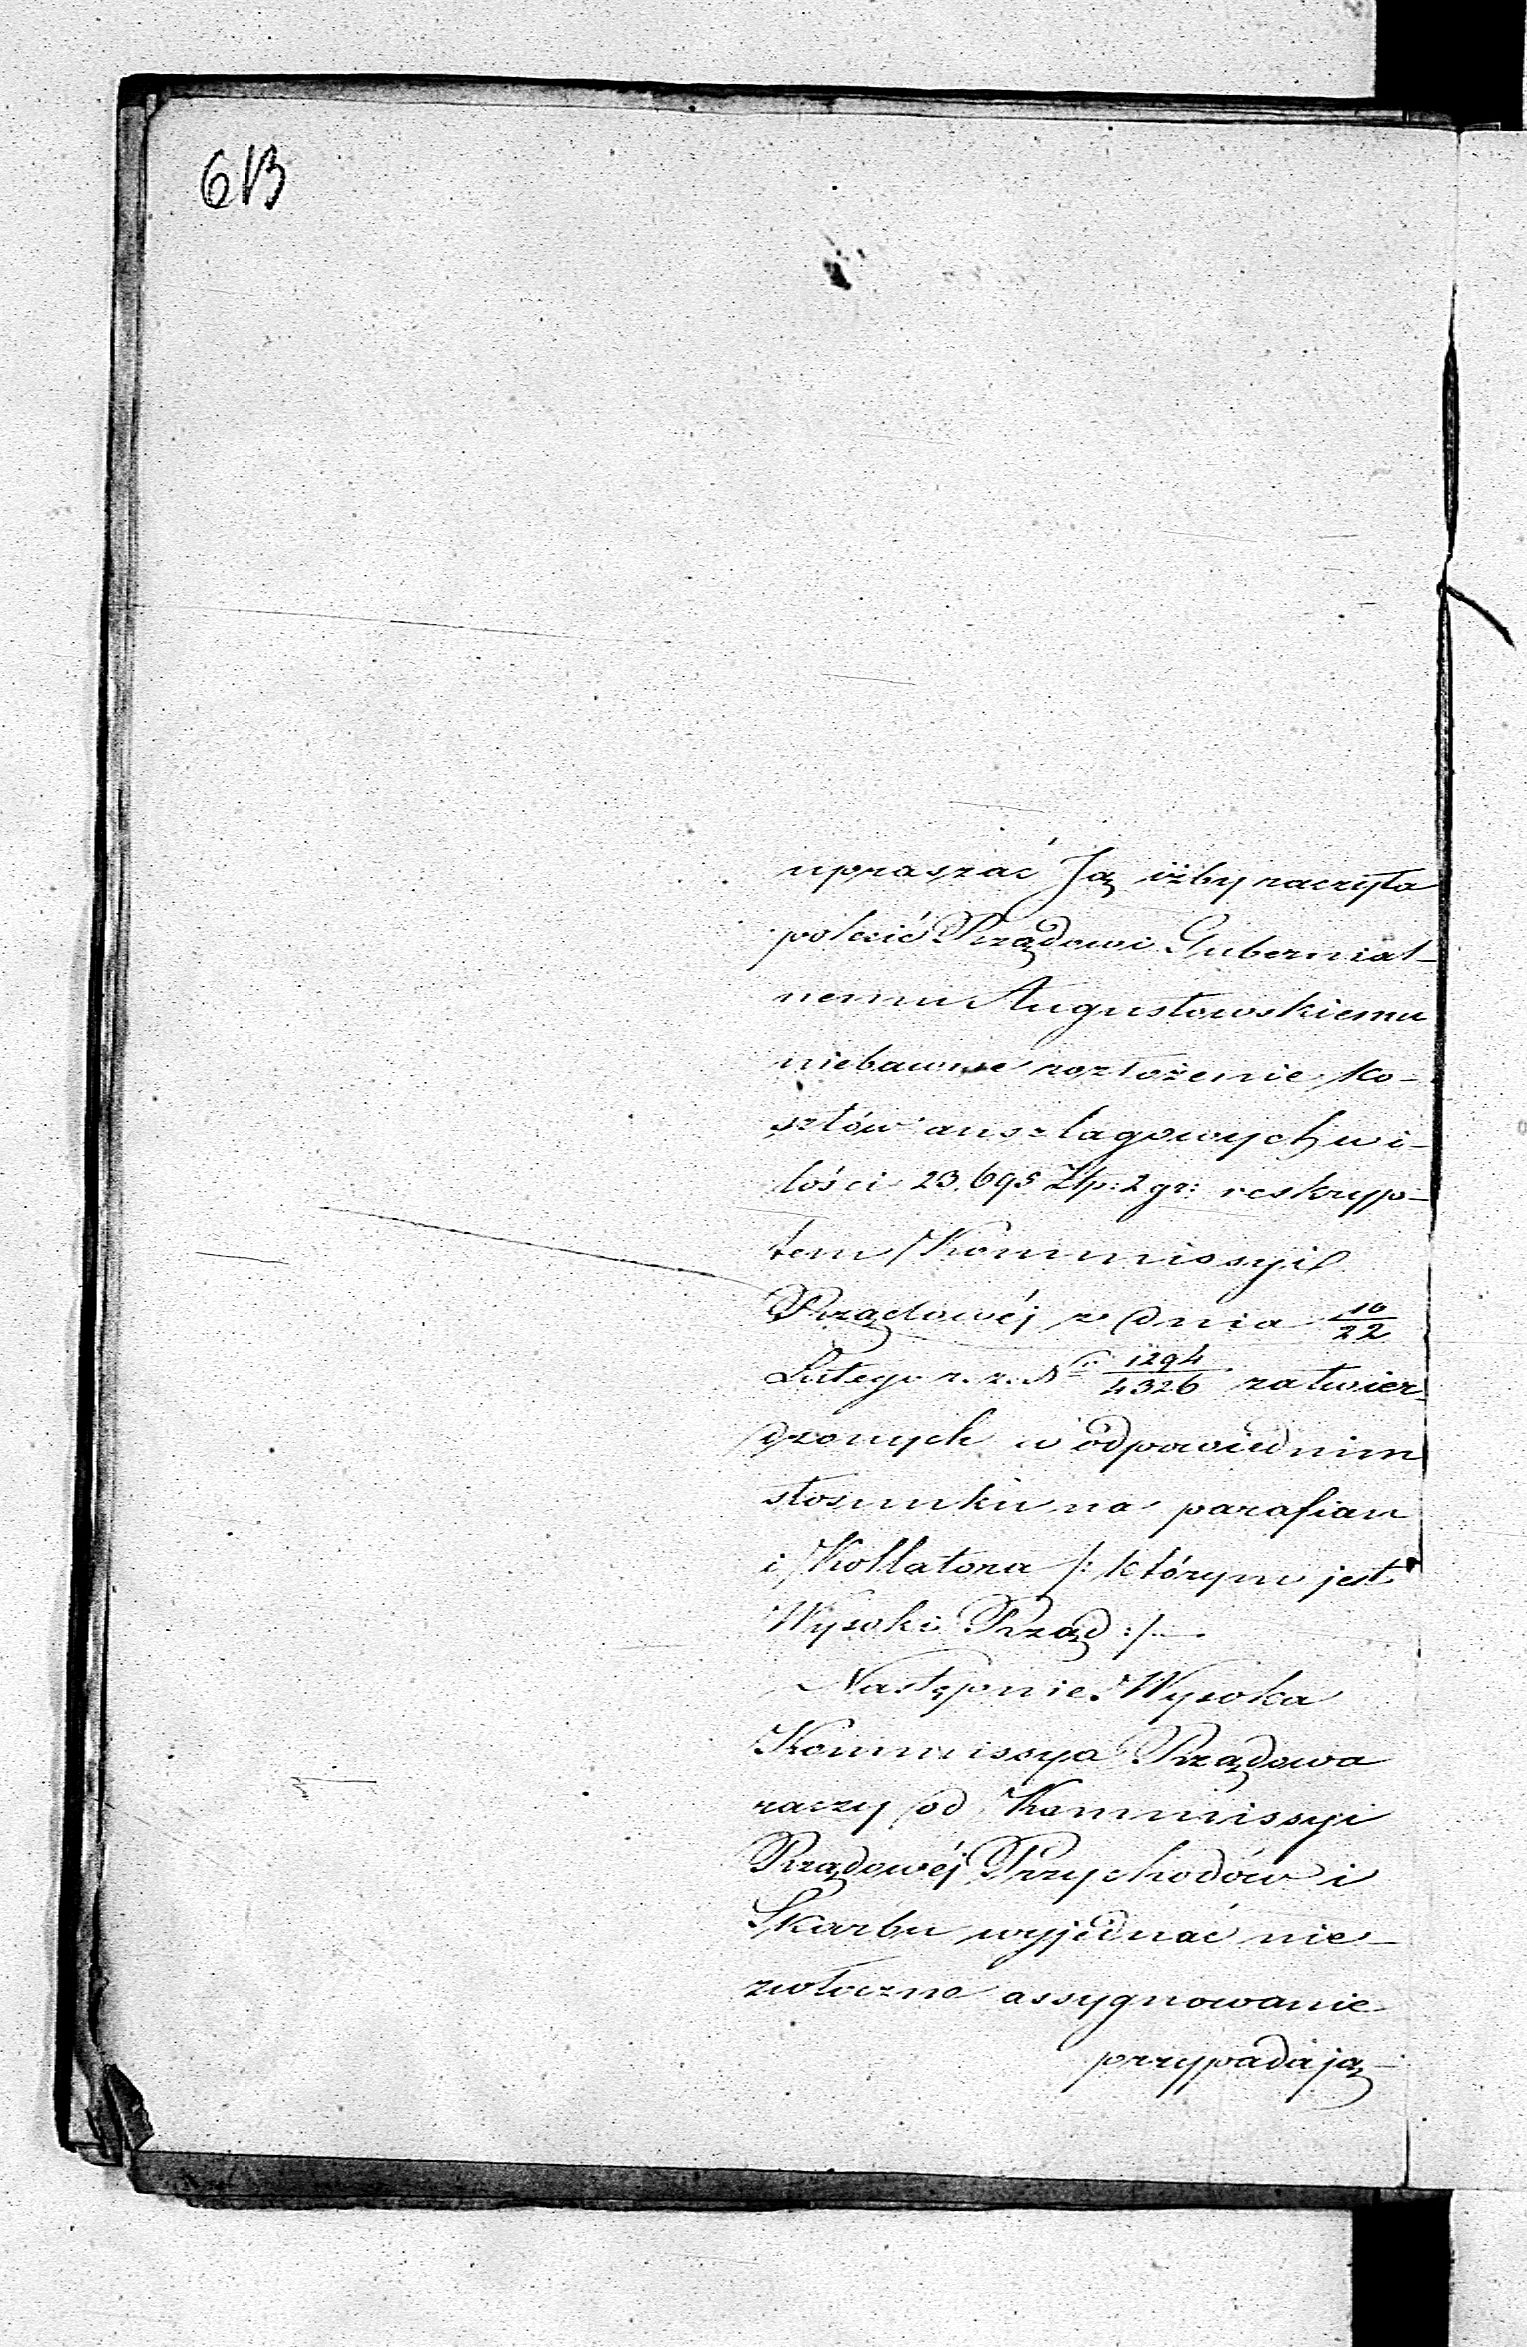 613
upraszać Ją iżby raczyła
polecić Rządowi Gubernial-
nemu Augustowskiemu
niebawne rozłożenie ko-
sztów anszlagowych w i-
lości 23.695 Złp: 2 gr: reskryp-
tem Kommissyi
Rządowéj z dnia 10/22
Lutego r. z. No 1294/4326 zatwier-
dzonych w odpowiednim
stosunku na parafian
i Kollatora /: którym jest
Wysoki Rząd :/.
Następnie Wysoka
Kommissya Rządowa
raczy od Kommissyi
Rządowéj Przychodów i
Skarbu wyjednać nie-
zwłoczne assygnowanie
przypadają-